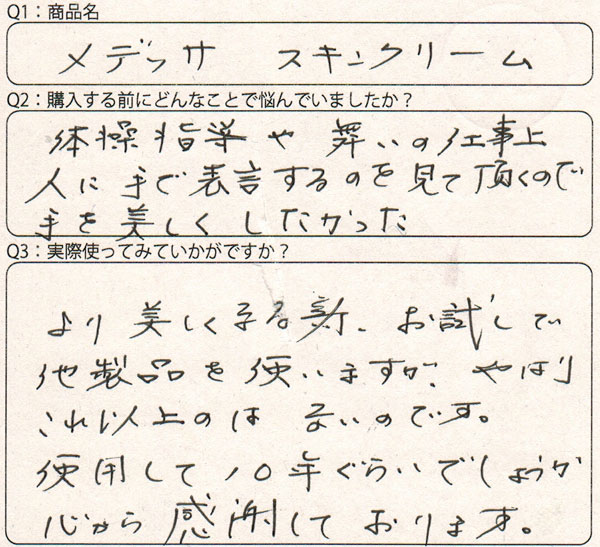 Q1：商品名
メデッサ スキンクリーム
Q2：購入する前にどんなことで悩んでいましたか？
体操指導や 舞いの仕事上
人に手で表言するのを見て頂くので
手を美しくしたかった
Q3：実際使ってみていかがですか？
より美しくなる為、お試しで
他製品を使いますが、やはり
これ以上のは ないのです。
使用して10年ぐらいでしょうか
心から感謝しております。